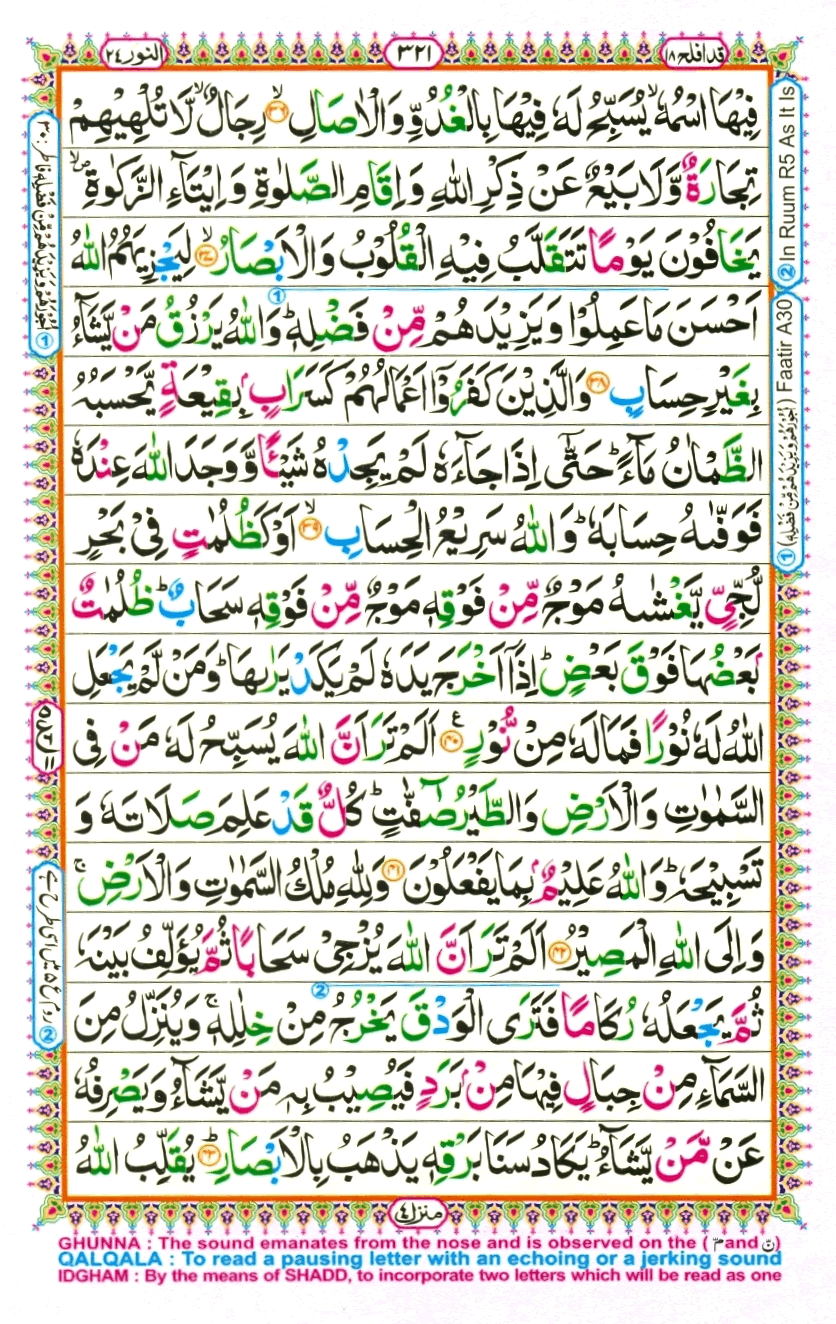 النور ٢٤
٣٢١
قد افلح ١٨
فِيْهَا اسْمُهٗ ۙ يُسَبِّحُ لَهٗ فِيْهَا بِالْغُدُوِّ وَالْاٰصَالِ ۙ‏﴿۳۶﴾ رِجَالٌ ۙ لَّا تُلْهِيْهِمْ
تِجَارَةٌ وَّلَا بَيْعٌ عَنْ ذِكْرِ اللّٰهِ وَاِقَامِ الصَّلٰوةِ وَاِيْتَآءِ الزَّكٰوةِ ۙ
يَخَافُوْنَ يَوْمًا تَتَقَلَّبُ فِيْهِ الْقُلُوْبُ وَالْاَبْصَارُ ۙ‏﴿۳۷﴾ لِيَجْزِيَهُمُ اللّٰهُ
اَحْسَنَ مَا عَمِلُوْا وَيَزِيْدَهُمْ مِّنْ فَضْلِهٖ ؕ وَاللّٰهُ يَرْزُقُ مَنْ يَّشَآءُ
بِغَيْرِ حِسَابٍ ‏﴿۳۸﴾ وَالَّذِيْنَ كَفَرُوْۤا اَعْمَالُهُمْ كَسَرَابٍۭ بِقِيْعَةٍ يَّحْسَبُهُ
الظَّمْاٰنُ مَآءً ؕ حَتّٰۤى اِذَا جَآءَهٗ لَمْ يَجِدْهُ شَيْـًٔا وَّوَجَدَ اللّٰهَ عِنْدَهٗ
فَوَفّٰىهُ حِسَابَهٗ ؕ وَاللّٰهُ سَرِيْعُ الْحِسَابِ ۙ‏﴿۳۹﴾ اَوْ كَظُلُمٰتٍ فِيْ بَحْرٍ
لُّجِّيٍّ يَّغْشٰىهُ مَوْجٌ مِّنْ فَوْقِهٖ مَوْجٌ مِّنْ فَوْقِهٖ سَحَابٌ ؕ ظُلُمٰتٌۢ
بَعْضُهَا فَوْقَ بَعْضٍ ؕ اِذَاۤ اَخْرَجَ يَدَهٗ لَمْ يَكَدْ يَرٰىهَا ؕ وَمَنْ لَّمْ يَجْعَلِ
اللّٰهُ لَهٗ نُوْرًا فَمَا لَهٗ مِنْ نُّوْرٍ ‏﴿۴۰﴾ اَلَمْ تَرَ اَنَّ اللّٰهَ يُسَبِّحُ لَهٗ مَنْ فِى
السَّمٰوٰتِ وَالْاَرْضِ وَالطَّيْرُ صٰٓفّٰتٍ ؕ كُلٌّ قَدْ عَلِمَ صَلَاتَهٗ وَ
تَسْبِيْحَهٗ ؕ وَاللّٰهُ عَلِيْمٌۢ بِمَا يَفْعَلُوْنَ ‏﴿۴۱﴾ وَلِلّٰهِ مُلْكُ السَّمٰوٰتِ وَالْاَرْضِ ۚ
وَاِلَى اللّٰهِ الْمَصِيْرُ ‏﴿۴۲﴾ اَلَمْ تَرَ اَنَّ اللّٰهَ يُزْجِيْ سَحَابًا ثُمَّ يُؤَلِّفُ بَيْنَهٗ
ثُمَّ يَجْعَلُهٗ رُكَامًا فَتَرَى الْوَدْقَ يَخْرُجُ مِنْ خِلٰلِهٖ ۚ وَيُنَزِّلُ مِنَ
السَّمَآءِ مِنْ جِبَالٍ فِيْهَا مِنْۢ بَرَدٍ فَيُصِيْبُ بِهٖ مَنْ يَّشَآءُ وَيَصْرِفُهٗ
عَنْ مَّنْ يَّشَآءُ ؕ يَكَادُ سَنَا بَرْقِهٖ يَذْهَبُ بِالْاَبْصَارِ ؕ‏﴿۴۳﴾ يُقَلِّبُ اللّٰهُ
② In Ruum R5 As It Is
① (اُجُوْرَهُمْ وَيَزِيْدَهُمْ مِّنْ فَضْلِهٖ) Faatir A30
منزل ٤
GHUNNA : The sound emanates from the nose and is observed on the ( مّ and نّ )
QALQALA : To read a pausing letter with an echoing or a jerking sound
IDGHAM : By the means of SHADD, to incorporate two letters which will be read as one